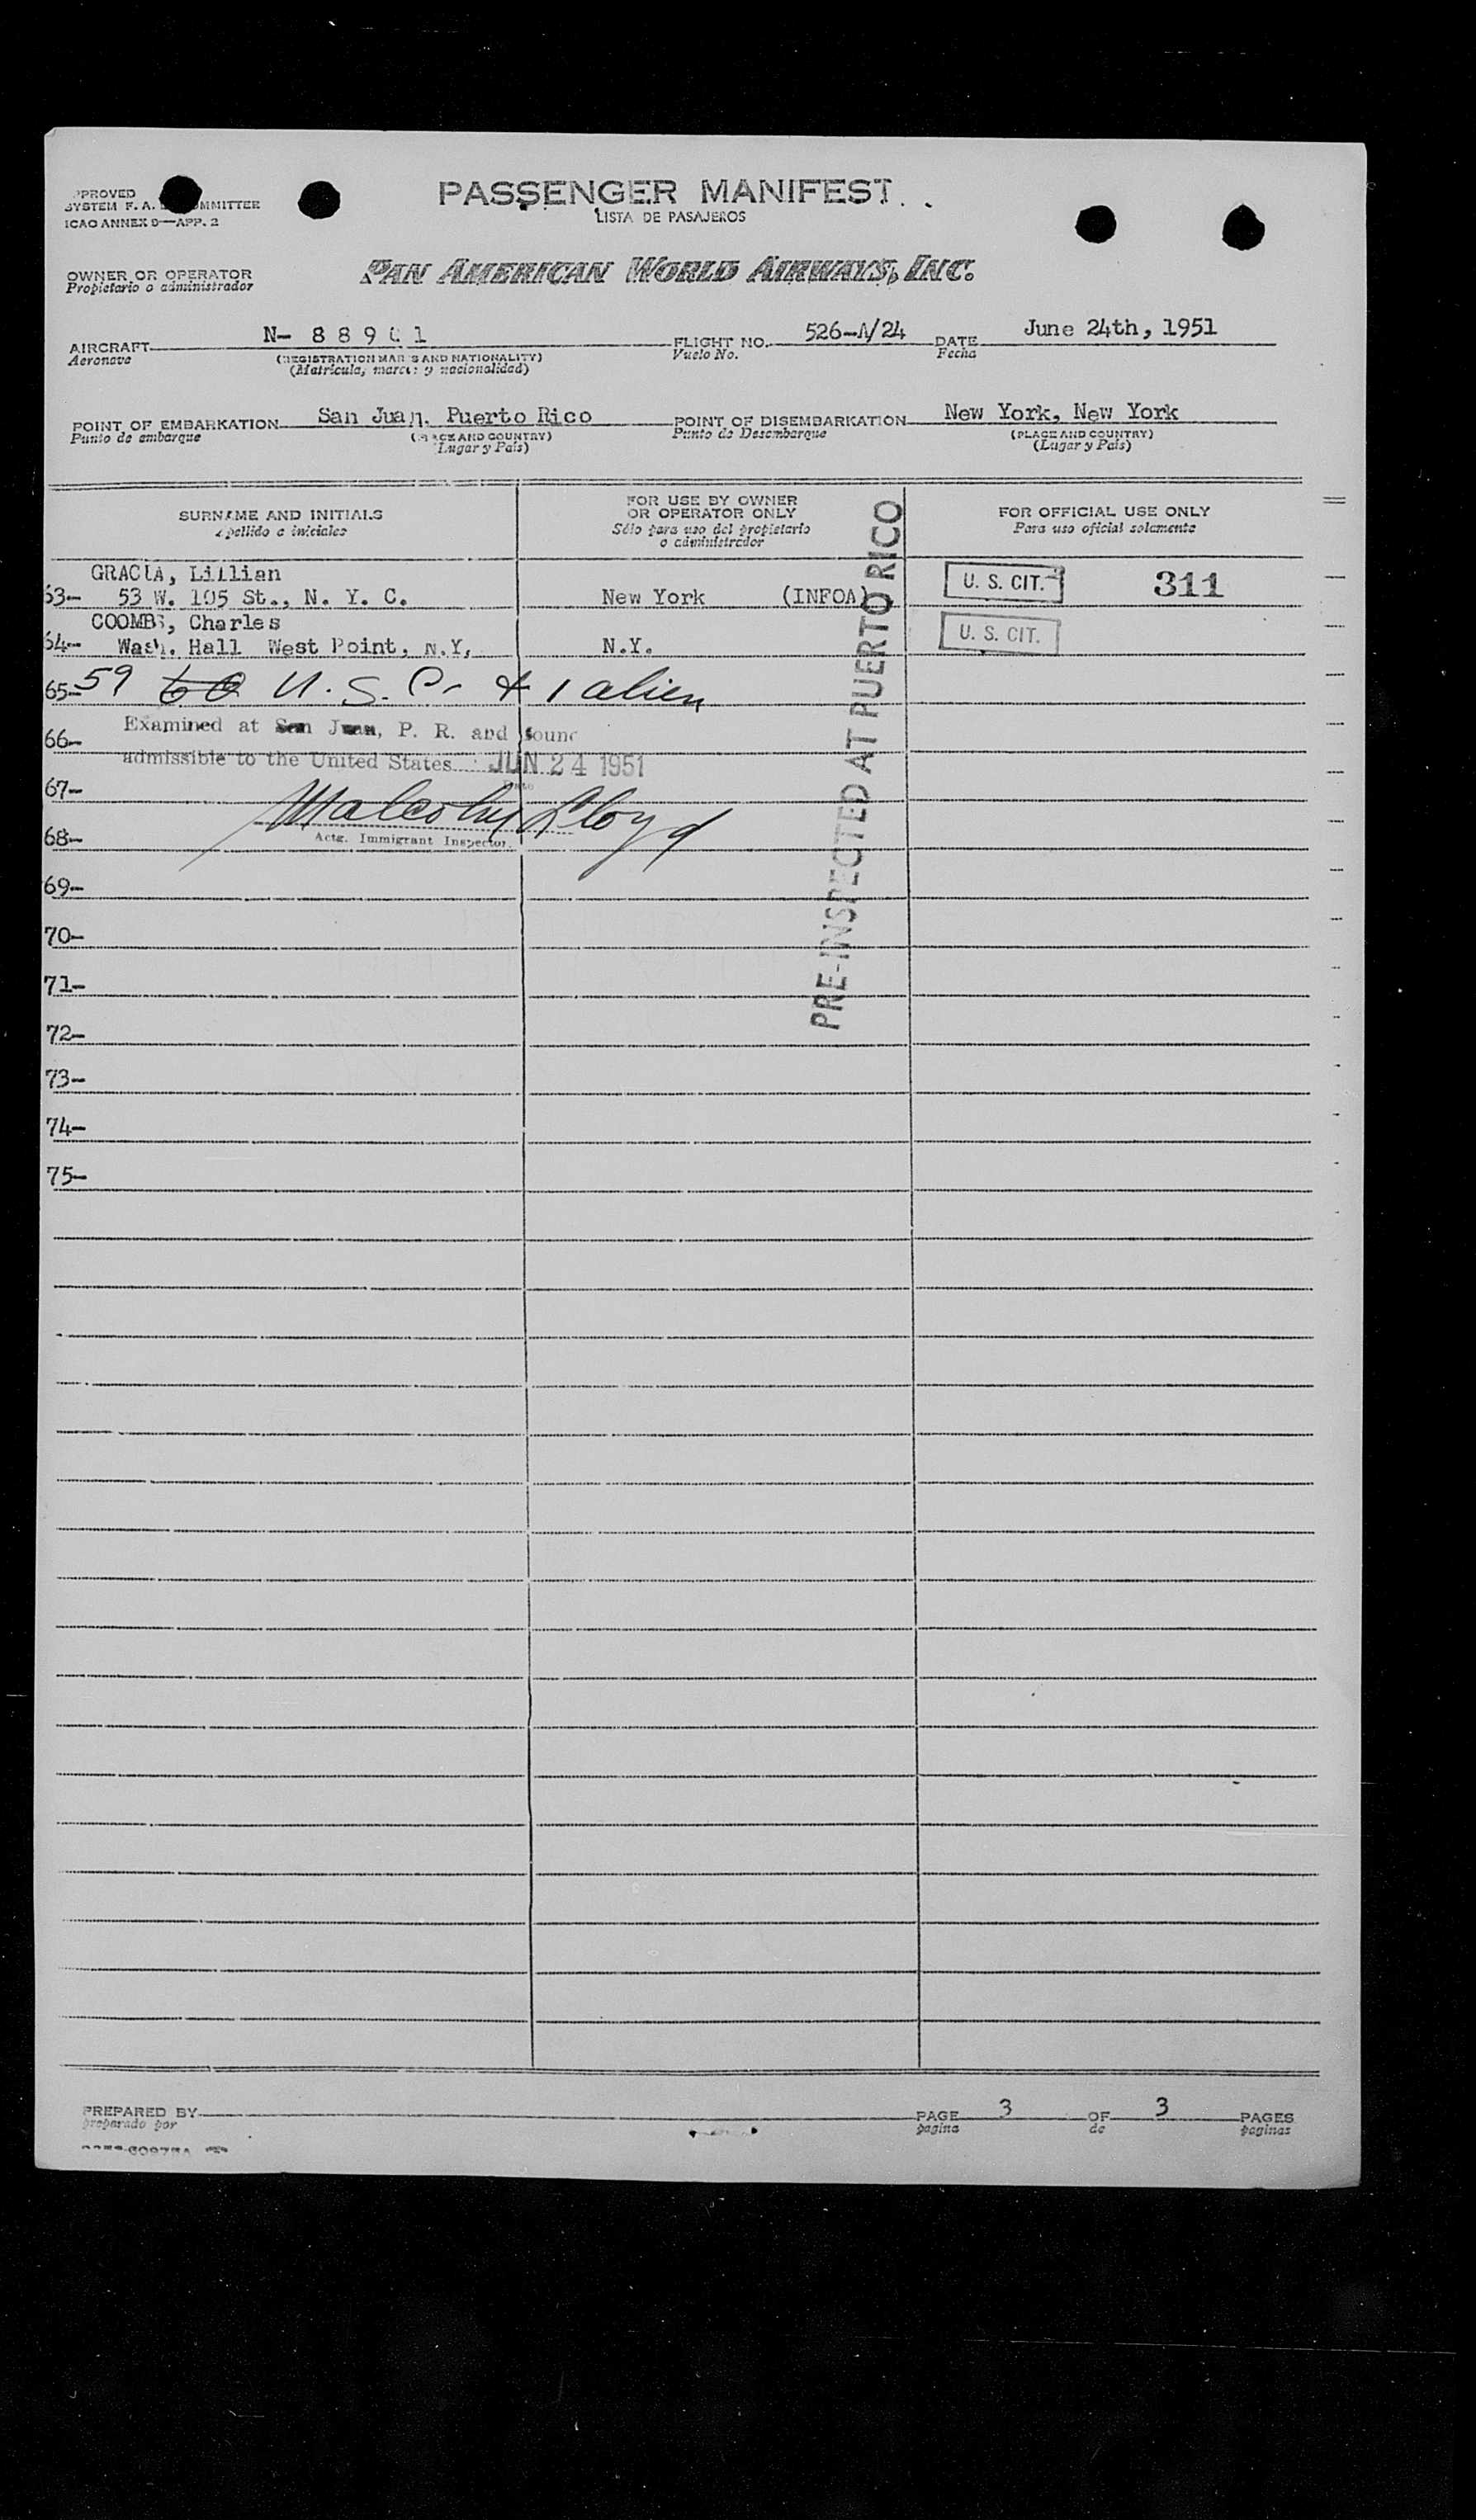 PPROVED
SYSTEM F. A. MMITTEE
ICAO ANNEX 9—APP. 2
PASSENGER MANIFEST
LISTA DE PASAJEROS
OWNER OR OPERATOR
Propietario o administrador
PAN AMERICAN WORLD AIRWAYS, INC.
AIRCRAFT N- 8 8 9 0 1 FLIGHT NO. 526-A/24 DATE June 24th, 1951
Aeronave (REGISTRATION MARKS AND NATIONALITY) Vuelo No. Fecha
(Matricula, marcas y nacionalidad)
POINT OF EMBARKATION San Juan. Puerto Rico POINT OF DISEMBARKATION New York, New York
Punto de embarque (PLACE AND COUNTRY) Punto de Desembarque (PLACE AND COUNTRY)
(Lugar y Pais) (Lugar y Pais)
SURNAME AND INITIALS
Apellido e iniciales
FOR USE BY OWNER
OR OPERATOR ONLY
Sólo para uso del propietario
o administrador
FOR OFFICIAL USE ONLY
Para uso oficial solamente
GRACIA, Lillian
63- 53 W. 105 St., N. Y. C. New York (INFOA) U. S. CIT. 311
COOMBS, Charles
64- Wash. Hall West Point, N.Y. N.Y. U. S. CIT.
65- 59 60 U.S.C. & 1 alien
66- Examined at San Juan, P. R. and found
admissible to the United States JUN 24 1951
Date
67- Malcolm Lloyd
68- Actg. Immigrant Inspector.
PRE-INSPECTED AT PUERTO RICO
69-
70-
71-
72-
73-
74-
75-
PREPARED BY PAGE 3 OF 3 PAGES
preparado por pagina de paginas